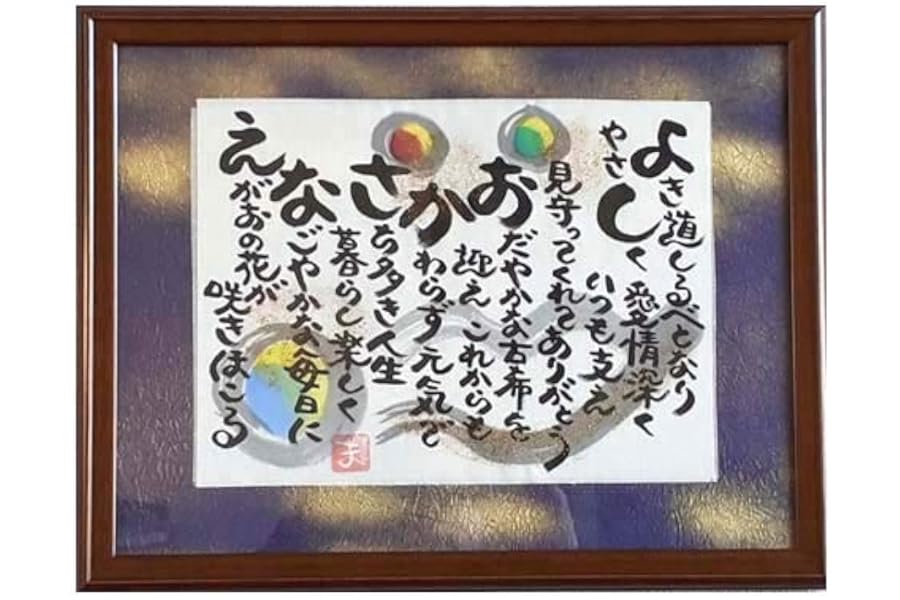 よき道しるべとなり
やさしく 愛情深く
いつも支え
見守ってくれてありがとう
おだやかな古希を
迎え これからも
かわらず元気で
さち多き人生
暮らし楽しく
なごやかな毎日に
えがおの花が
咲きほこる